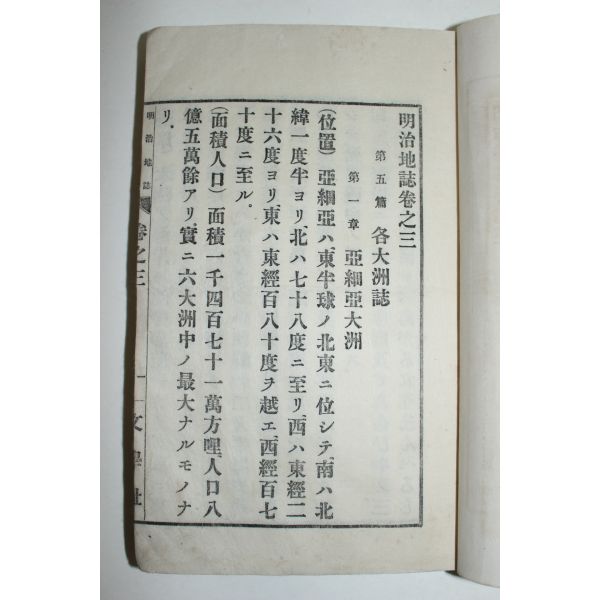 明治地誌卷之三
第五篇 各大洲誌
第一章 亞細亞大洲
(位置) 亞細亞ハ、東半球ノ北東ニ位シテ、南ハ北
緯一度半ヨリ、北ハ七十八度ニ至リ、西ハ東經二
十六度ヨリ、東ハ東經百八十度ヲ越エ、西經百七
十度ニ至ル。
(面積人口) 面積一千四百七十一萬方哩、人口八
億五萬餘アリ、實ニ六大洲中ノ最大ナルモノナ
リ。
明治地誌 卷之三 一 文學社